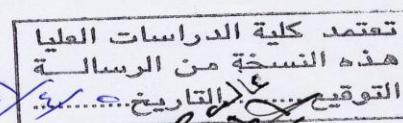 تعتمد كلية الدراسات العليا
هذه النسخة من الرسالـــة
التوقيع.........التاريخ.........